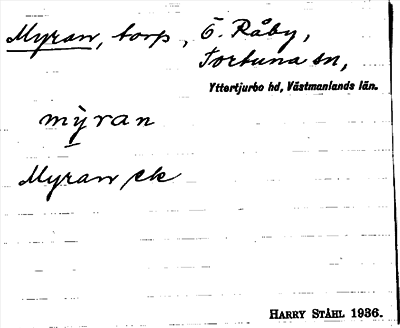 Myran, torp, Ö. Råby,
Fortuna sn,
Yttertjurbo hd, Västmanlands län.
mỳran
Myran ek
HARRY STÅHL 1936.